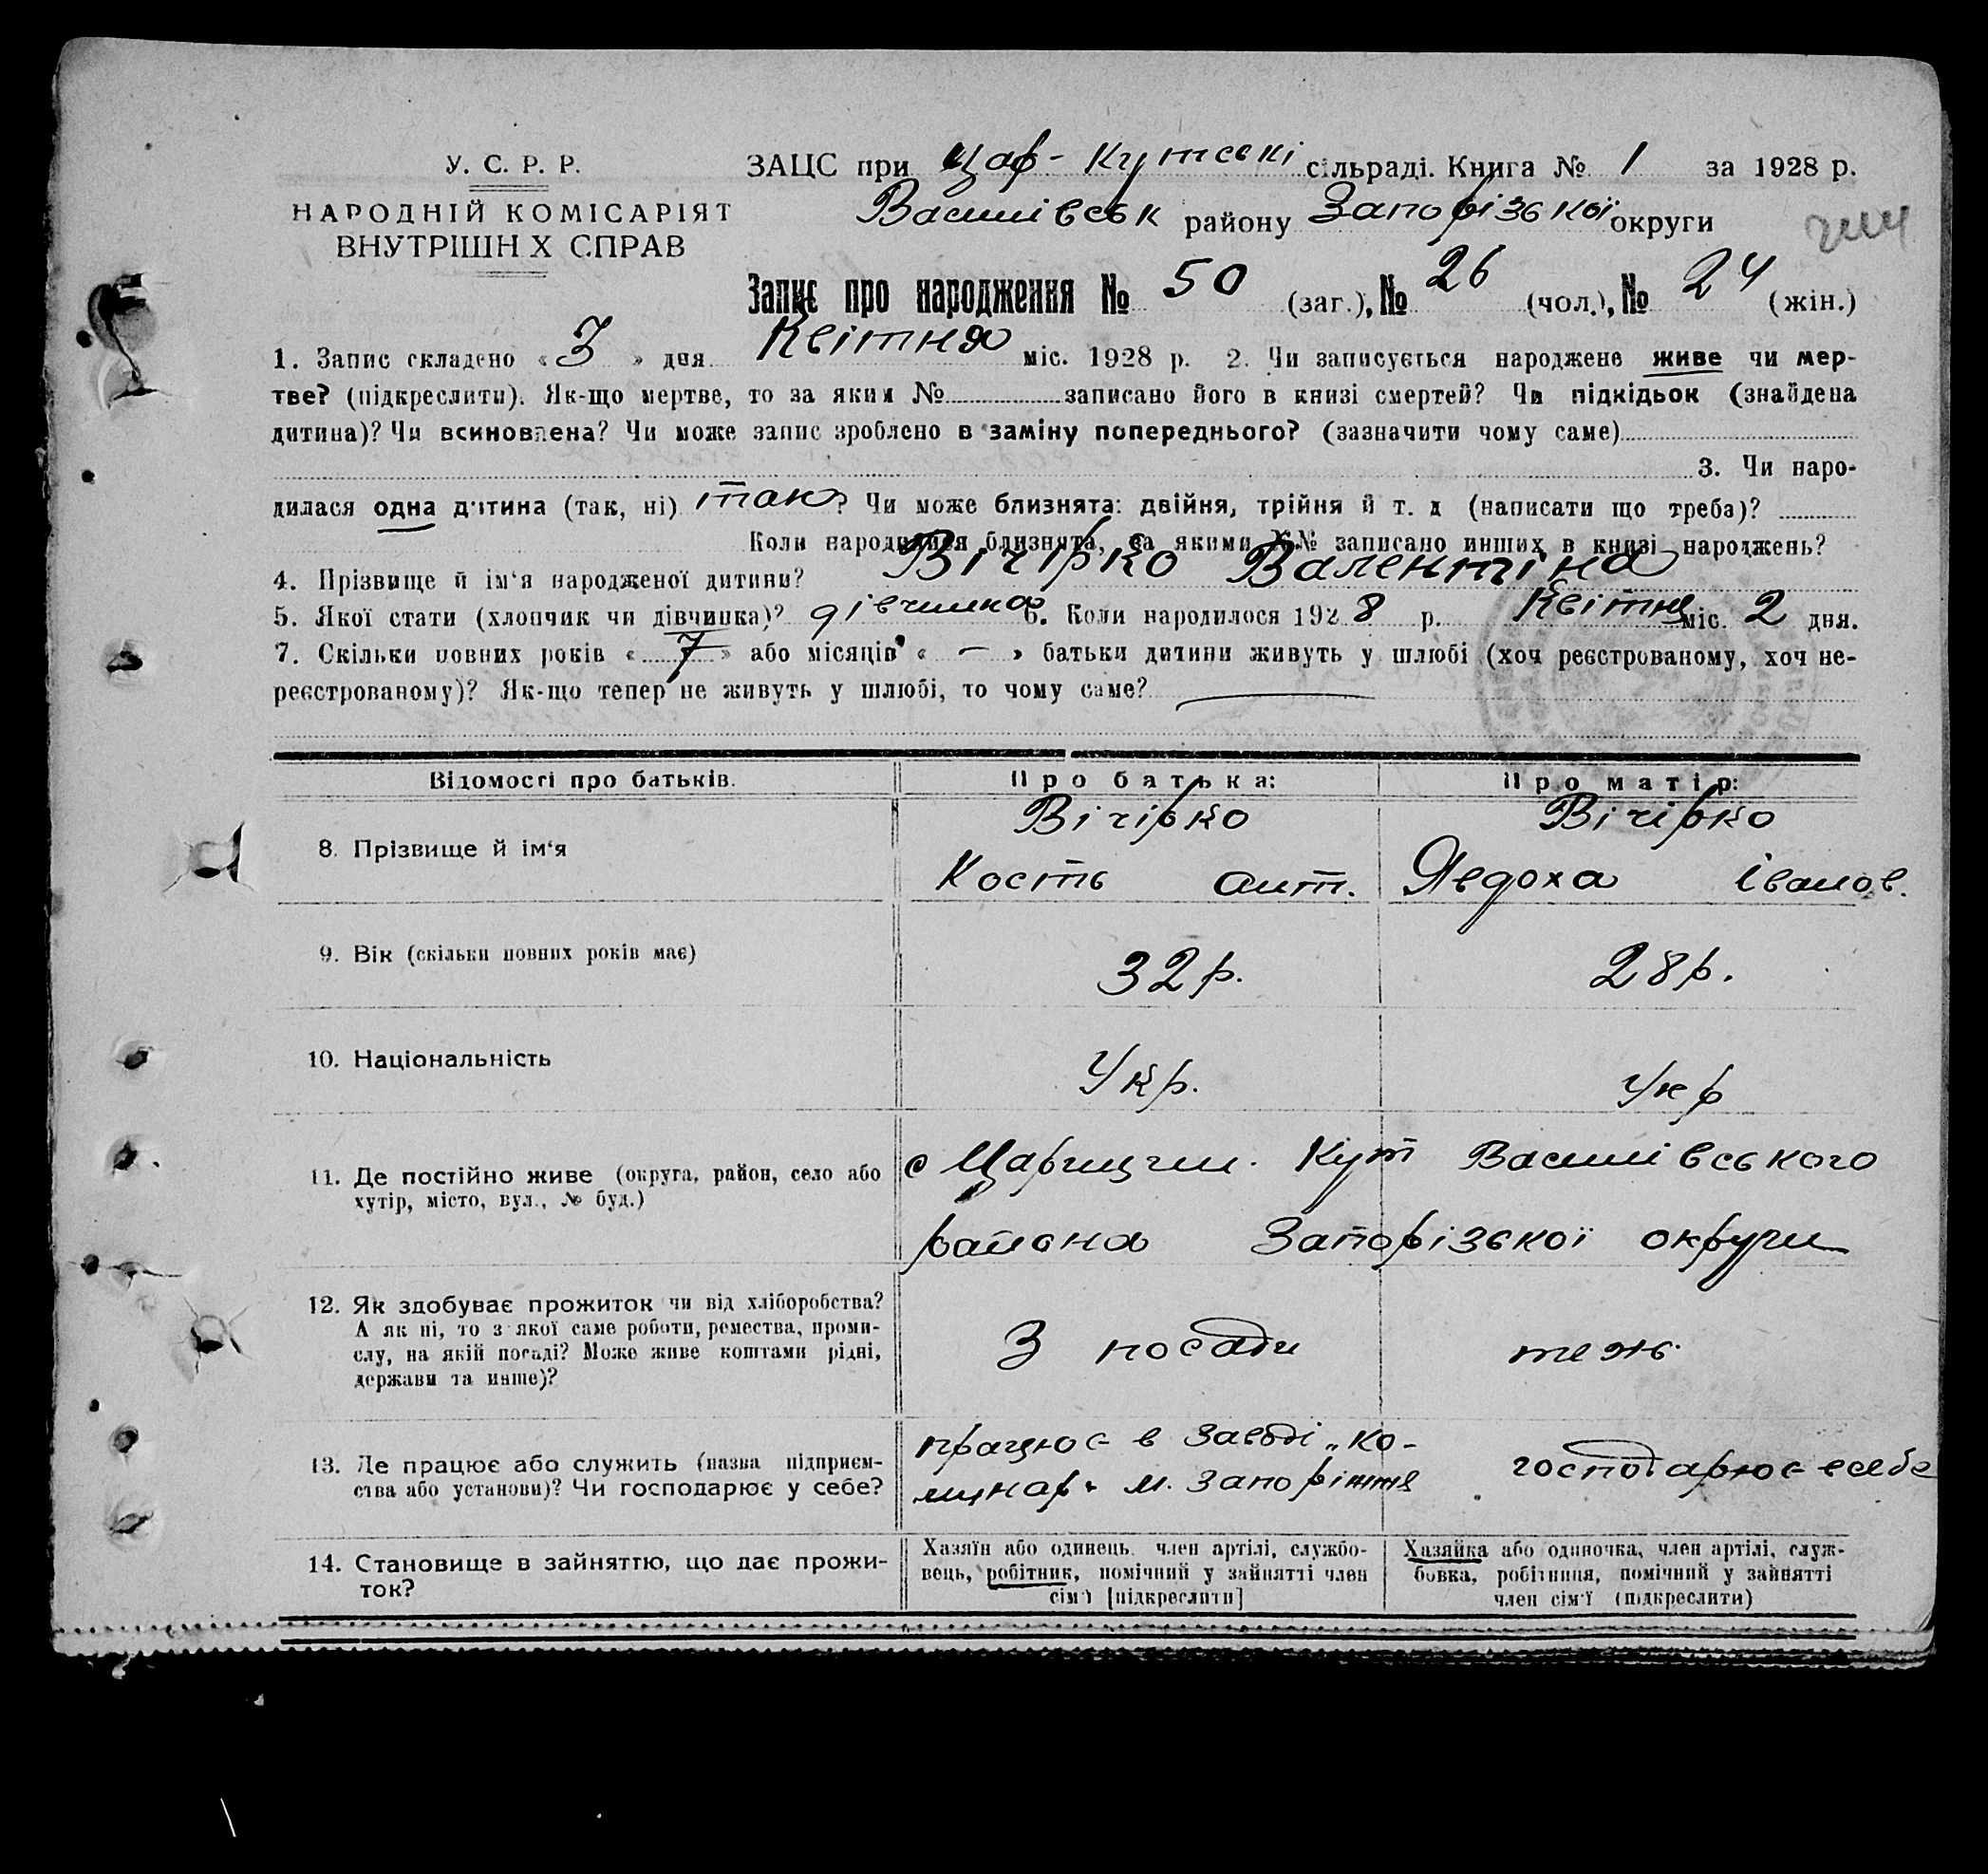 У. С. Р. Р.
НАРОДНІЙ КОМІСАРІЯТ
ВНУТРІШН Х СПРАВ
ЗАЦС при Цар-Кутські сільраді. Книга № 1 за 1928 р.
Василівськ району Запорізької округи
Запис про народження № 50 (заг.), № 26 (чол.), № 24 (жін.)
1. Запис складено « 3 » дня Квітня міс. 1928 р. 2. Чи записується народжене живе чи мер-
тве? (підкреслити). Як-що мертве, то за яким № записано його в книзі смертей? Чи підкідьок (знайдена
дитина)? Чи всиновлена? Чи може запис зроблено в заміну попереднього? (зазначити чому саме)
3. Чи наро-
дилася одна дитина (так, ні) так? Чи може близнята: двійня, трійня й т. д (написати що треба)?
Коли народилися близнята, за якими №№ записано инших в книзі народжень?
4. Прізвище й ім‘я народженої дитини? Вічірко Валентіна
5. Якої стати (хлопчик чи дівчинка)? дівчинка 6. Коли народилося 1928 р. Квітня міс. 2 дня.
7. Скільки повних років « 7 » або місяців « — » батьки дитини живуть у шлюбі (хоч реєстрованому, хоч не-
реєстрованому)? Як-що тепер не живуть у шлюбі, то чому саме?
Відомості про батьків. Про батька: Про матір:
8. Прізвище й ім‘я
Вічірко
Кость Ант.
Вічірко
Явдоха Іванов.
9. Вік (скільки повних років має) 32 р. 28 р.
10. Національність Укр. Укр
11. Де постійно живе (округа, район, село або
хутір, місто, вул., № буд.)
с Царицин. Кут Василівського
района Запорізької округи
12. Як здобуває прожиток чи від хліборобства?
А як ні, то з якої саме роботи, ремества, проми-
слу, на якій посаді? Може живе коштами рідні,
держави та инше)?
З посади теж.
13. Де працює або служить (назва підприєм-
ства або установи)? Чи господарює у себе?
працює в заводі „Ко-
мунар“ м. Запоріжжя
господарює в себе
14. Становище в зайняттю, що дає прожи-
ток?
Хазяїн або одинець, член артілі, службо-
вець, робітник, помічний у зайнятті член
сім‘ї [підкреслити]
Хазяйка або одиночка, член артілі, служ-
бовка, робітниця, помічний у зайнятті
член сім‘ї (підкреслити)